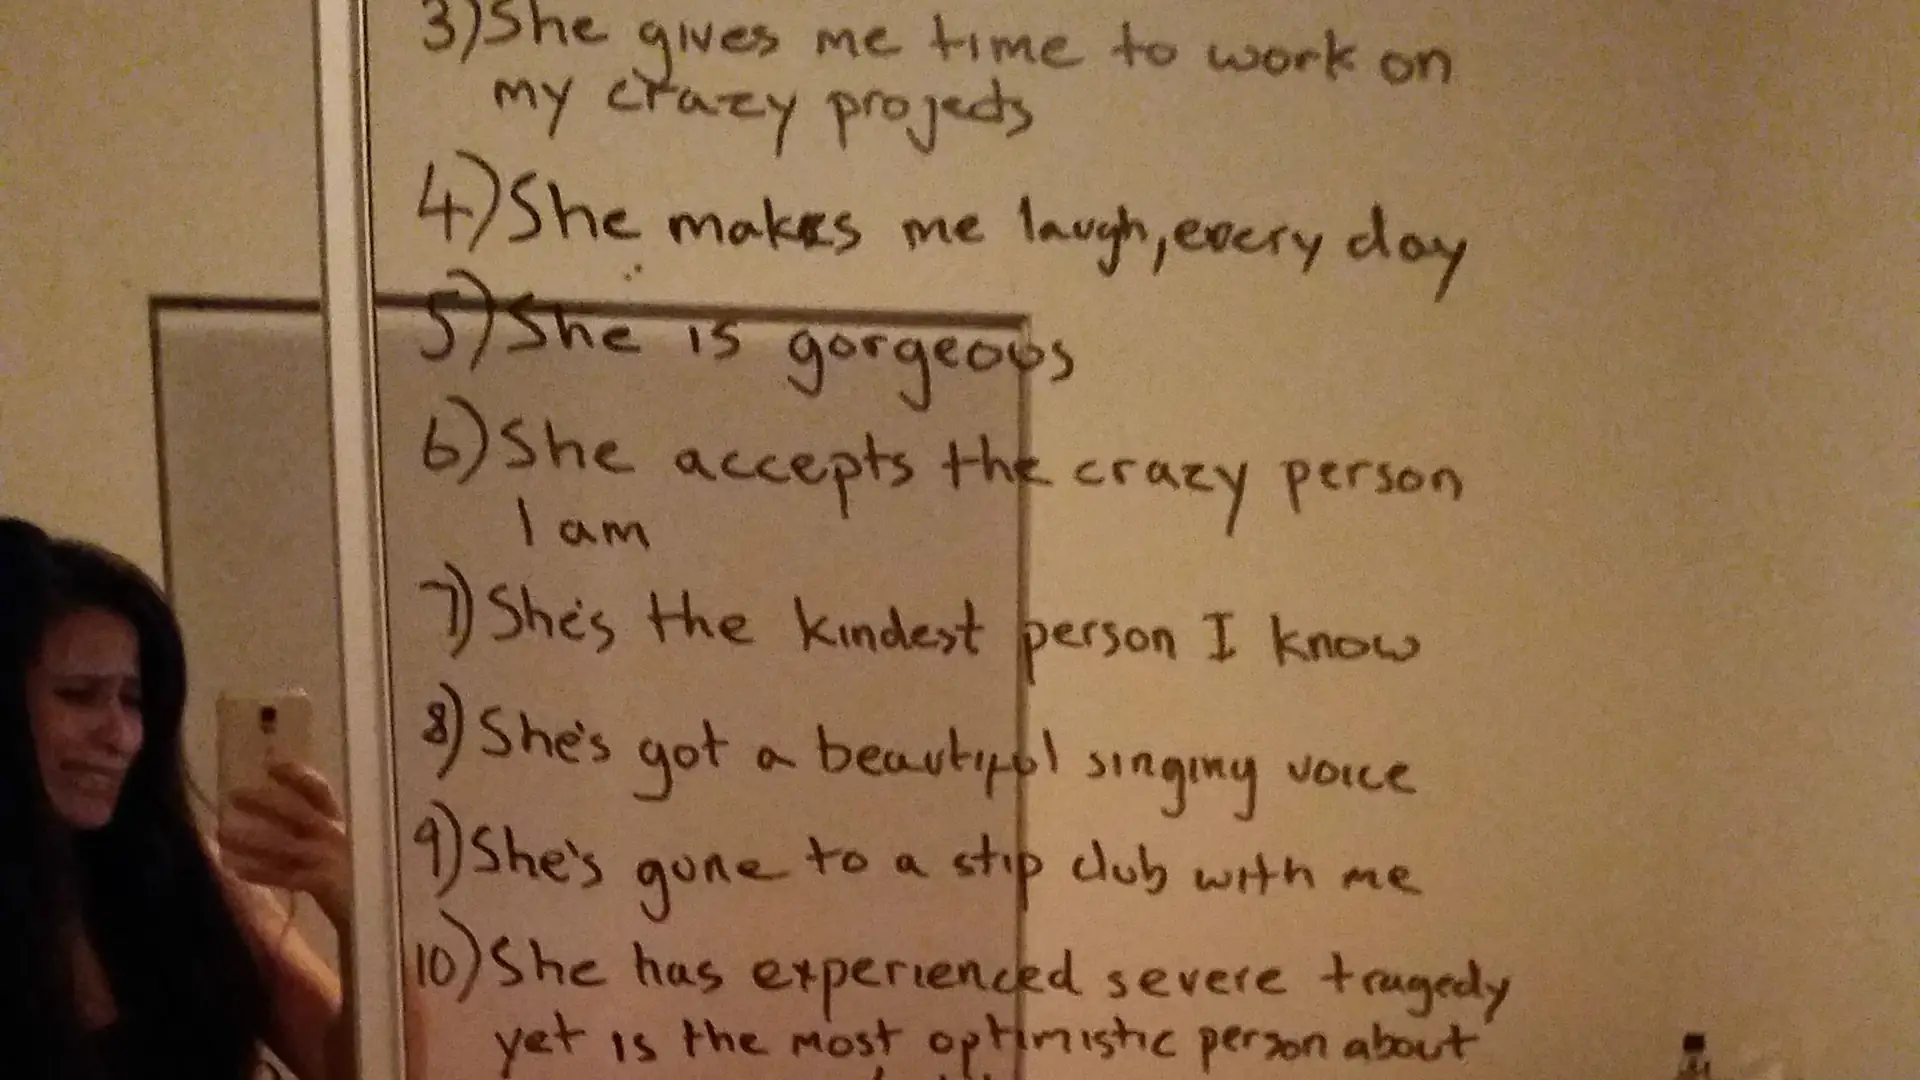 3) She gives me time to work on
my crazy projects
4) She makes me laugh, every day
5) She is gorgeous
6) She accepts the crazy person
I am
7) She's the kindest person I know
8) She's got a beautiful singing voice
9) She's gone to a stip club with me
10) She has experienced severe tragedy
yet is the most optimistic person about